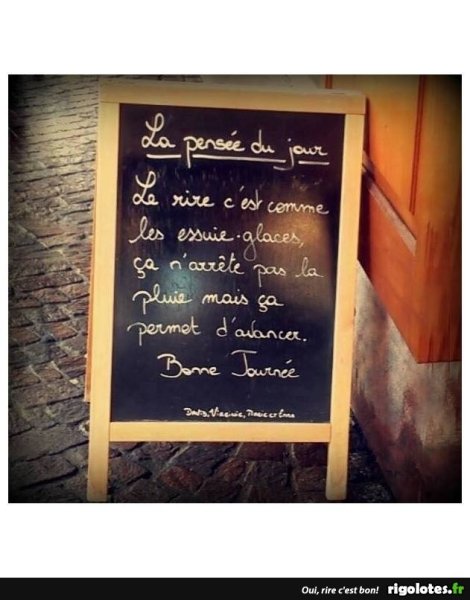 La pensée du jour
Le rire c'est comme
les essuie-glaces,
ça n'arrête pas la
pluie mais ça
permet d'avancer.
Bonne Journée
David, Virginie, Marie et Enna
Oui, rire c'est bon! rigolotes.fr